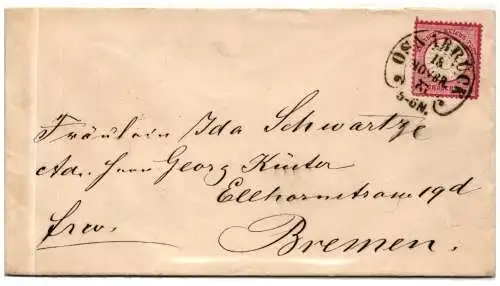 OSNABRÜCK
18
NOVBR.
5-6N.
Fräulein Ida Schwartze
Adr. Herr Georg Küster
Ellhornstrasse 19d
frco.
Bremen.